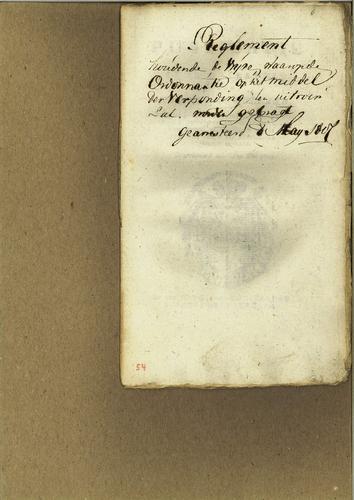 6
Reglement
houdende de wijze waarop de
Ordonnantie op het middel
der Verponding ten uitvoer
Zal worde gebragt
Gearresteerd 8 May 1807
54